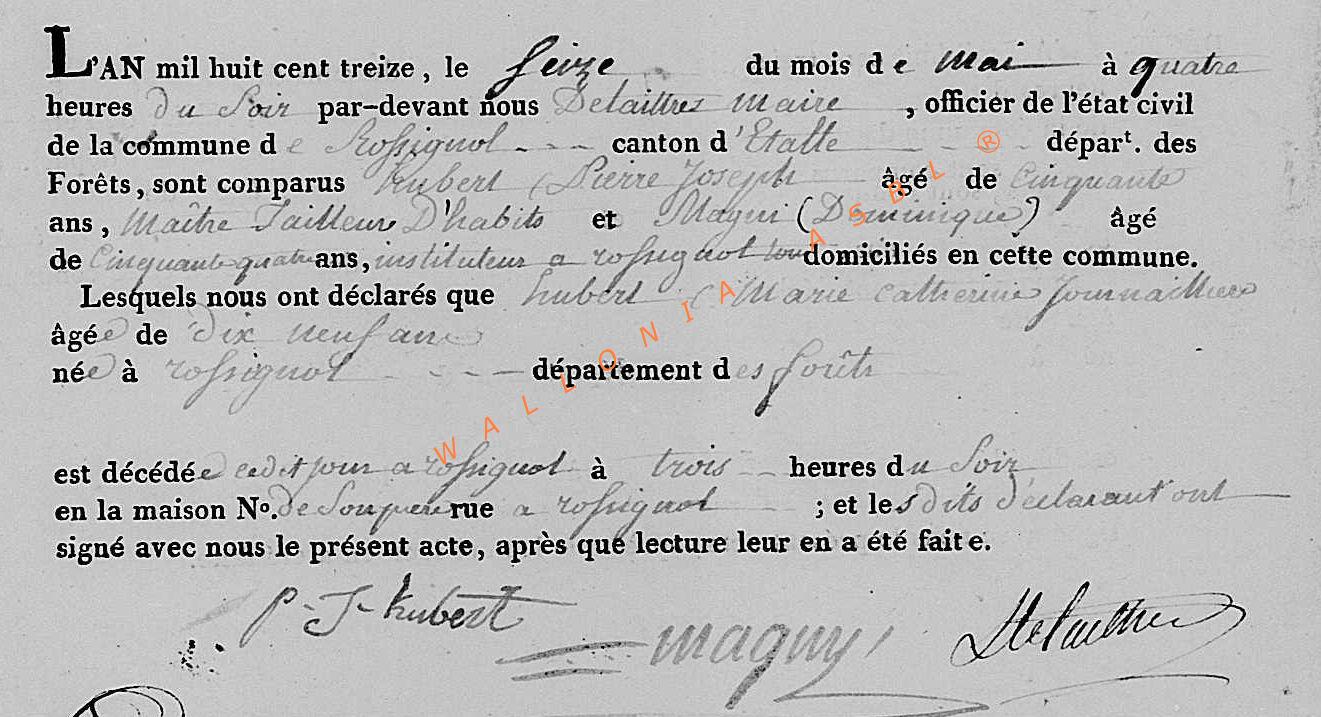 L'AN mil huit cent treize, le Seize du mois de Mai à quatre
heures du Soir par-devant nous Delaittres Maire, officier de l'état civil
de la commune de Rossignol canton d'Etalle ® départ. des
Forêts, sont comparus hubert (Pierre Joseph âgé de Cinquante
ans, Maitre Tailleur D'habits et Magni (Dominique) âgé
de Cinquante quatre ans, instituteur a rossignol tous domiciliés en cette commune.
Lesquels nous ont déclarés que hubert (Marie Catherine Journailliere
âgée de dix neuf ans
née à rossignol département des forêts
WALLONIA ASBL
est décédée cedit jour a rossignol à trois heures du Soir
en la maison No. de Son pere rue a rossignol ; et lesdits déclarant ont
signé avec nous le présent acte, après que lecture leur en a été faite.
P-J-hubert
magny
Delaittres